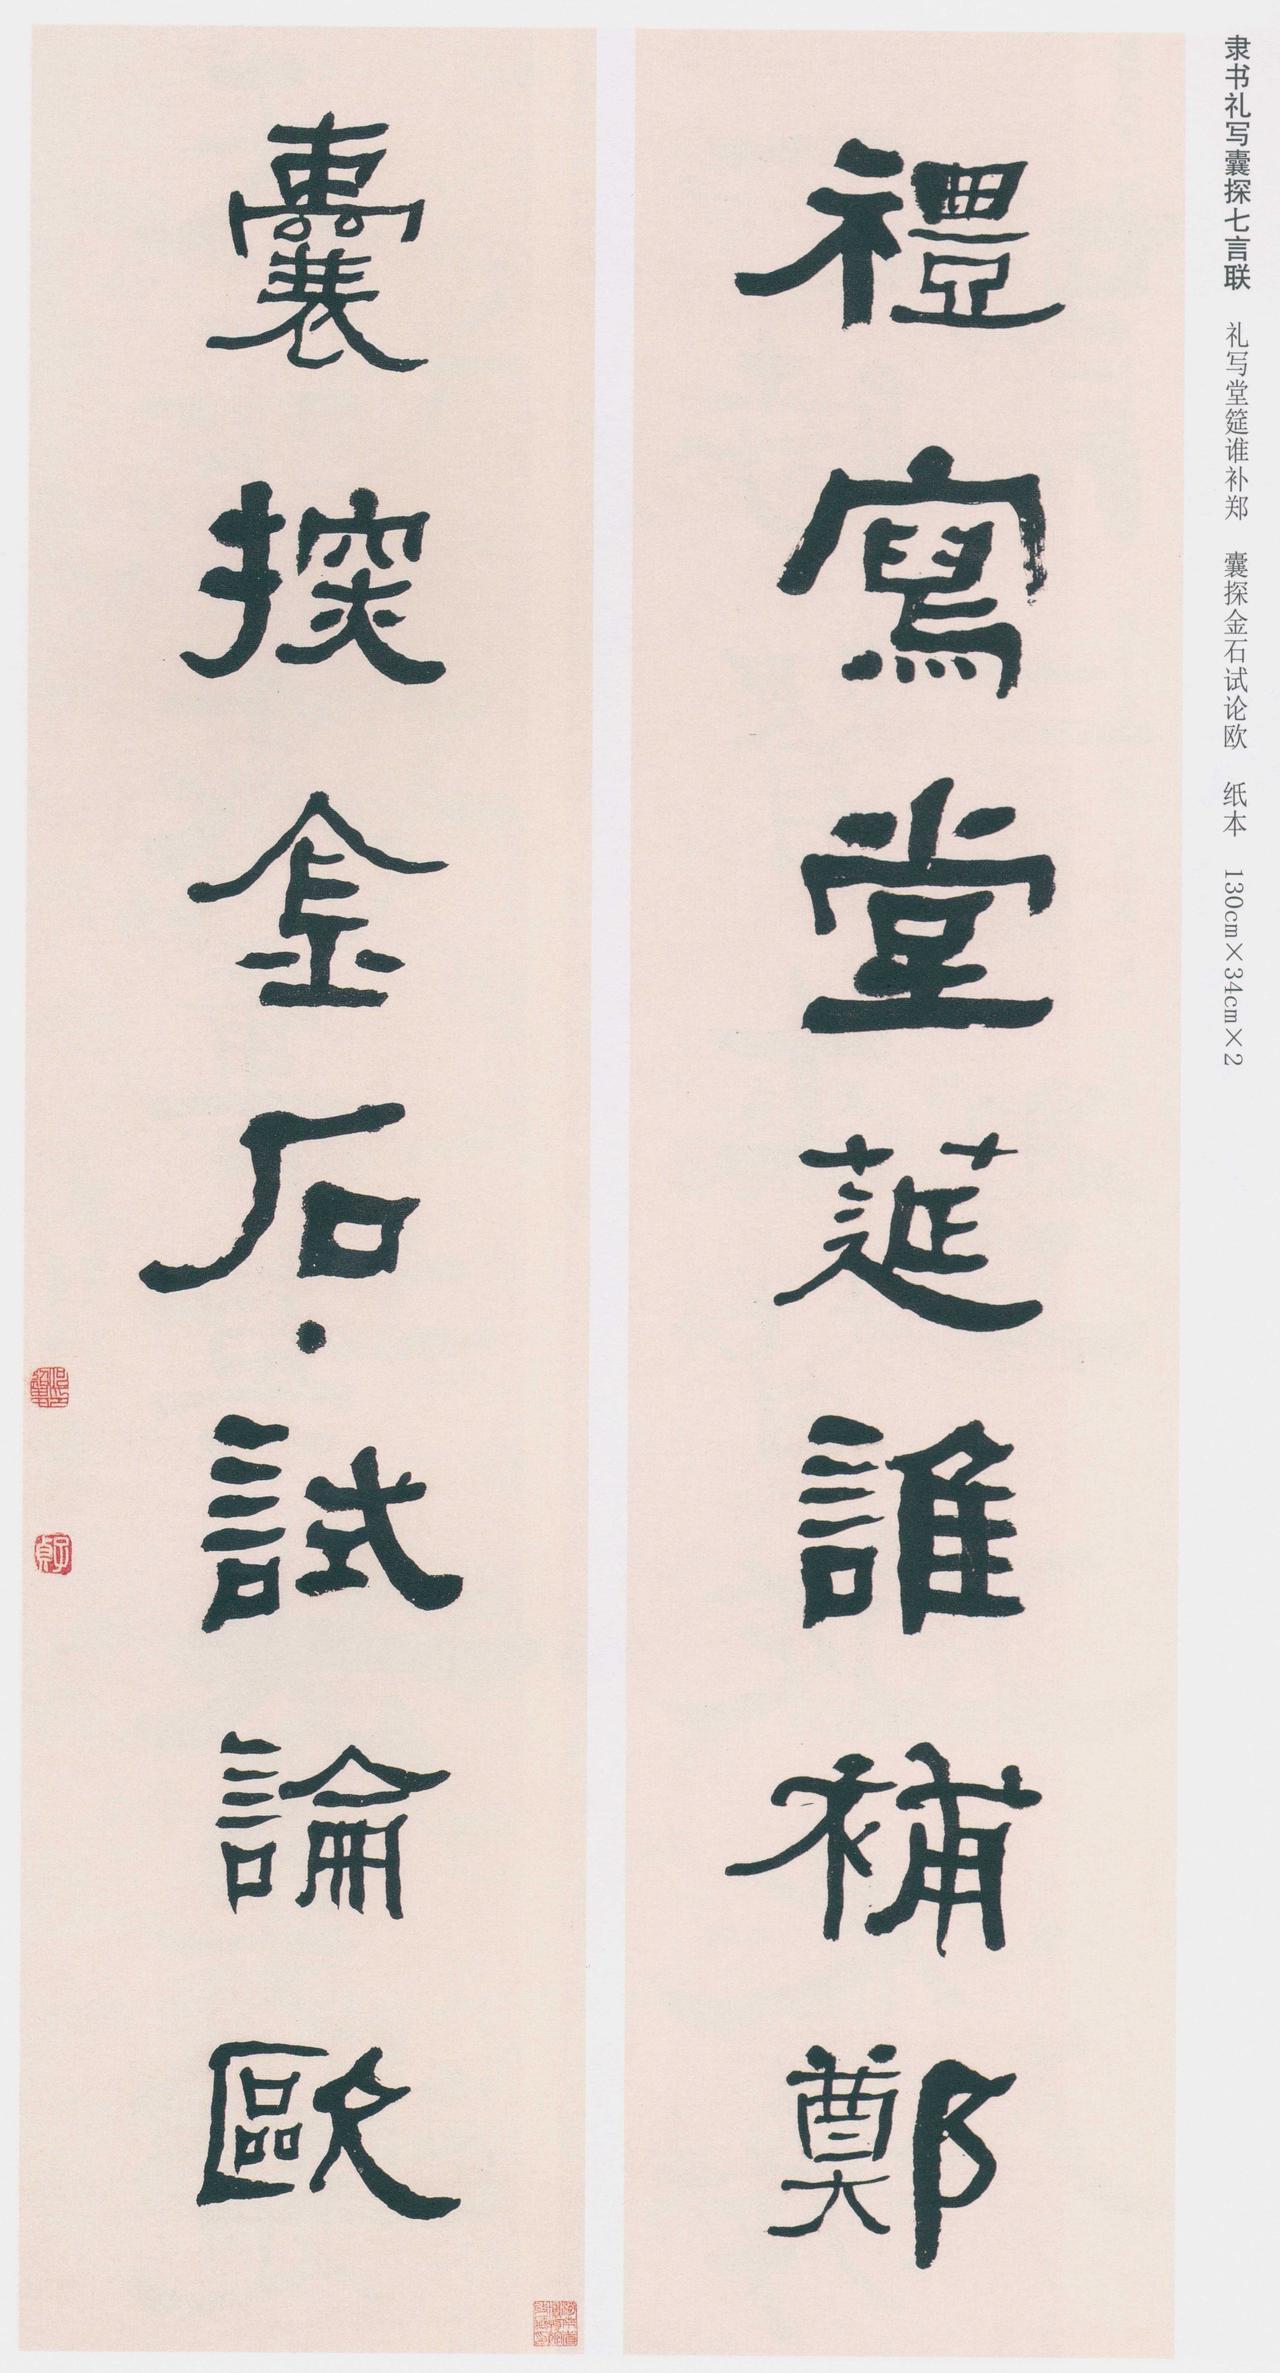 隶书礼写囊探七言联 礼写堂筵谁补郑 囊探金石试论欧 纸本 130cm×34cm×2
禮寫堂莚誰補鄭
囊探金石試論歐
子貞